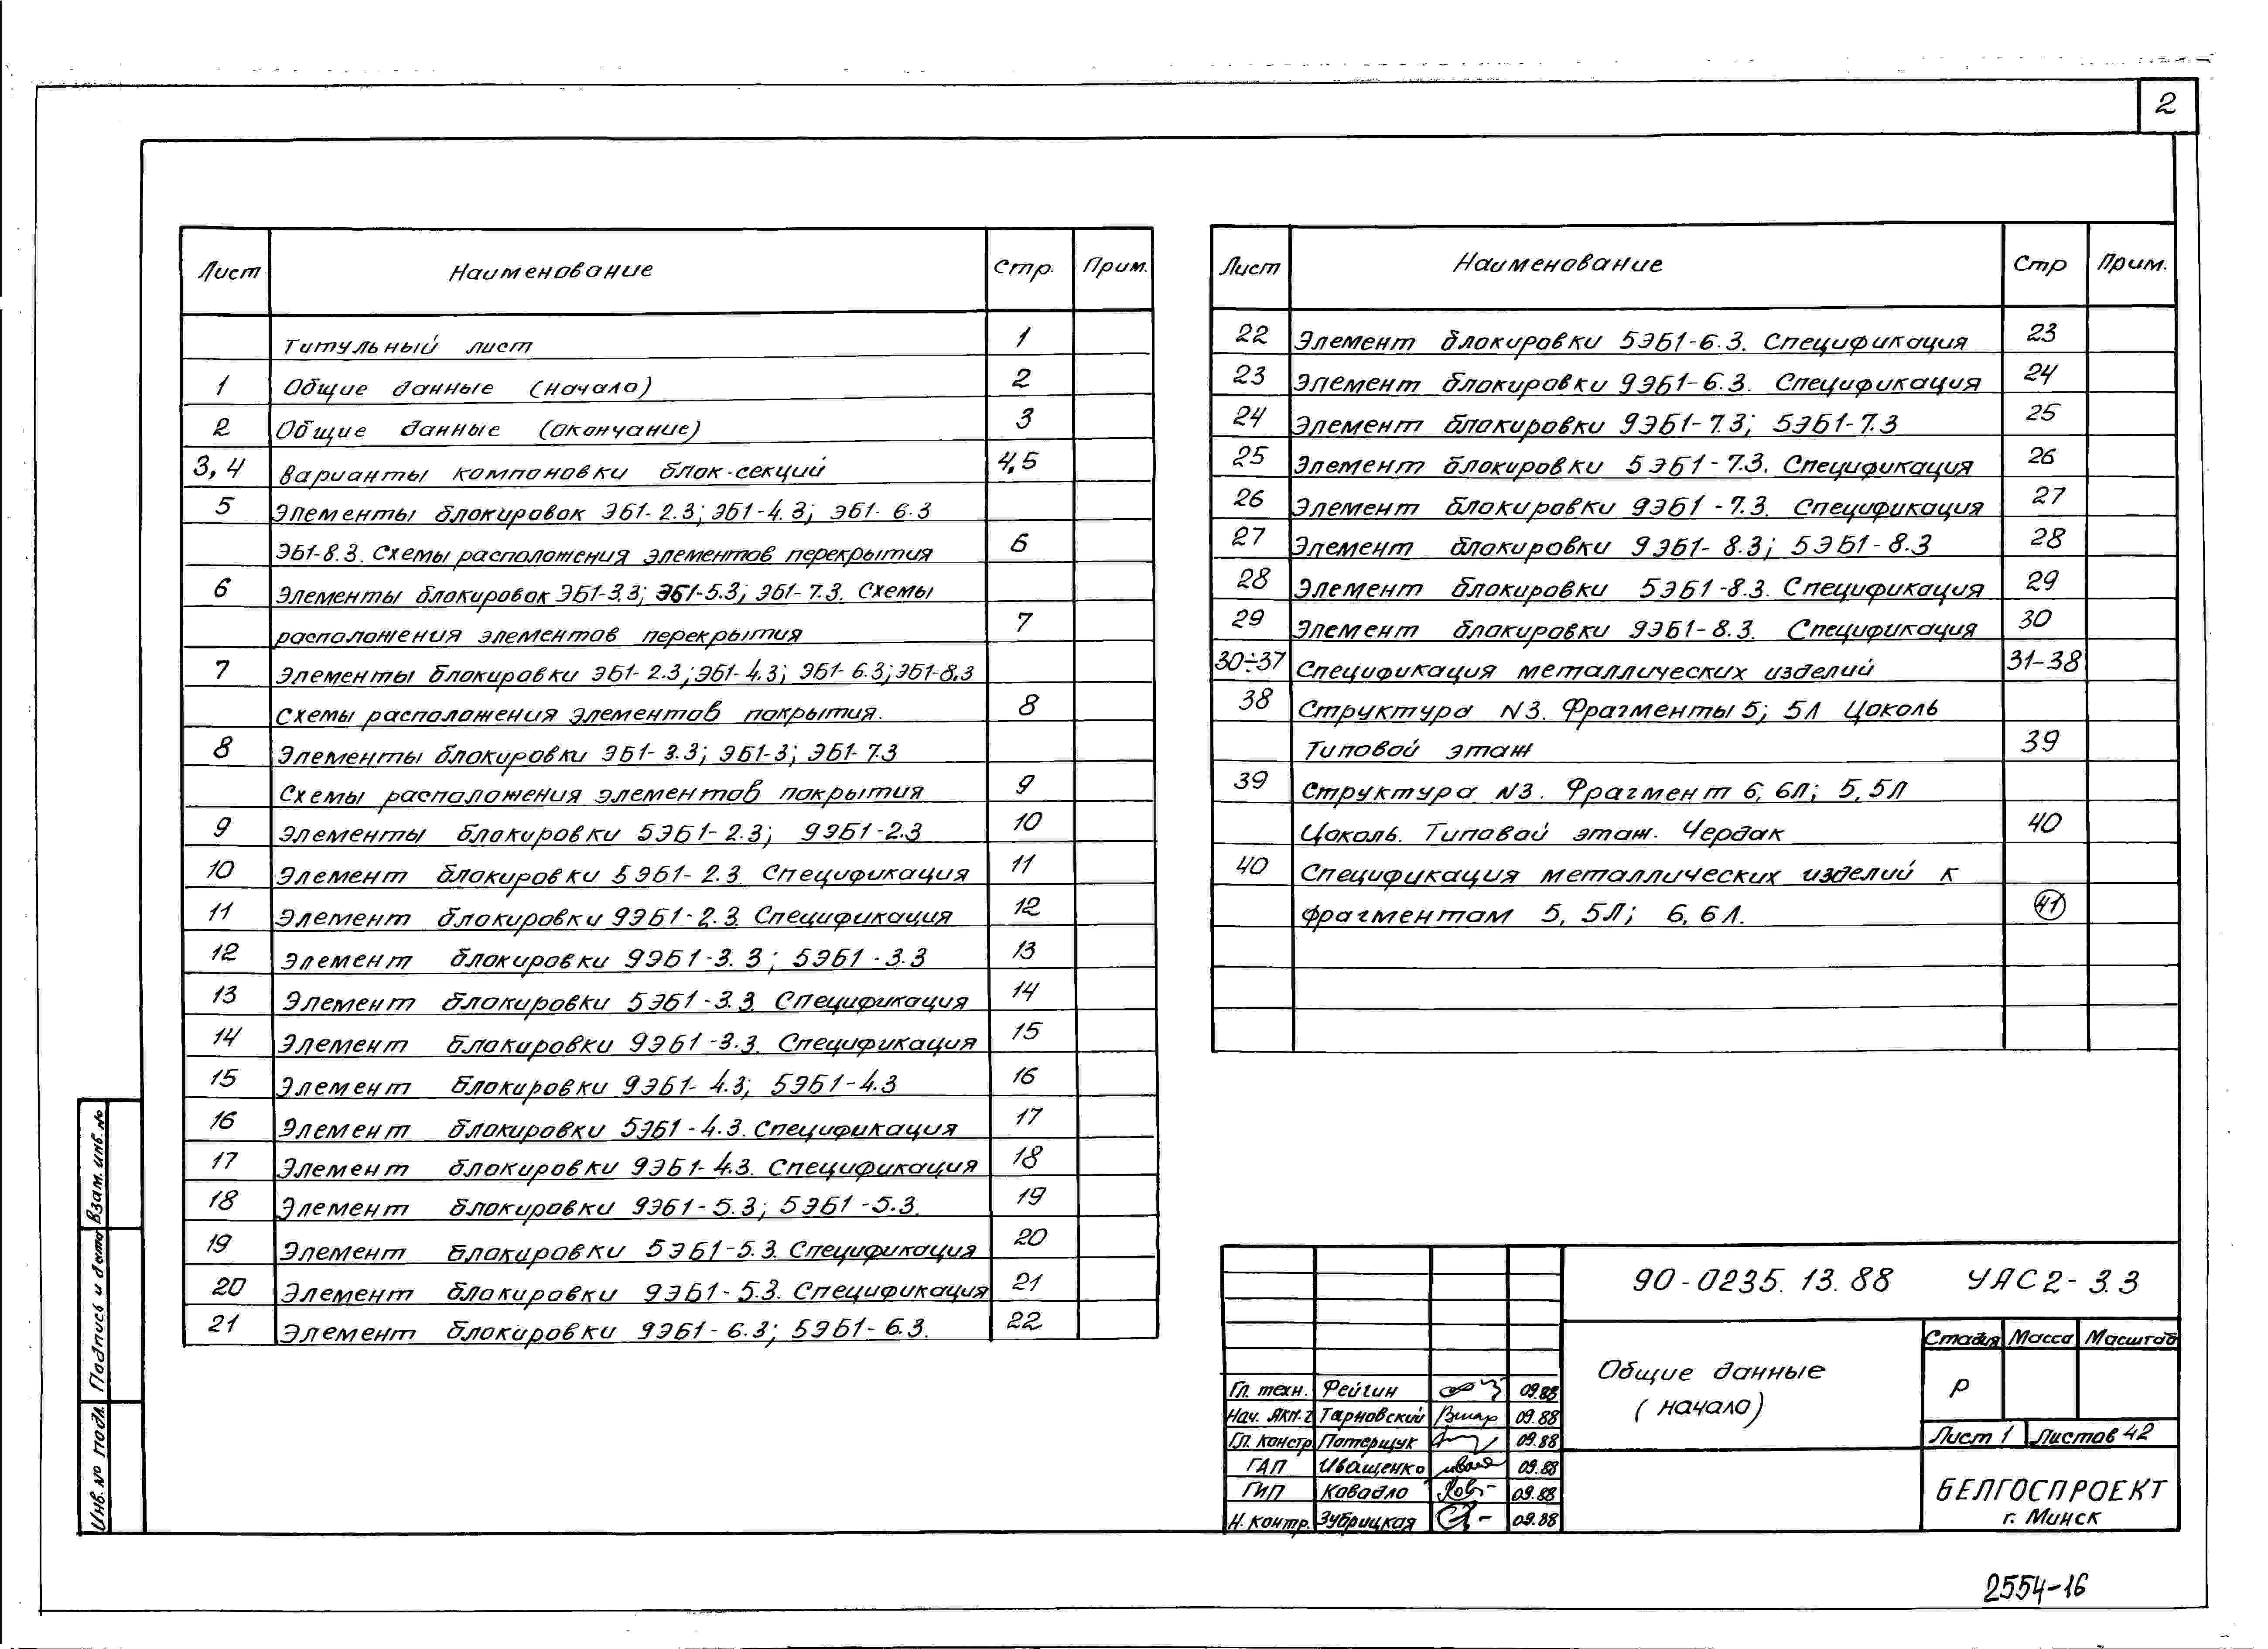 2
Лист Наименование Стр. Прим.
Титульный лист 1
1 Общие данные (начало) 2
2 Общие данные (окончание) 3
3,4 Варианты компоновки блок-секций 4,5
5 Элементы блокировок ЭБ1-2.3; ЭБ1-4.3; ЭБ1-6.3
ЭБ1-8.3. Схемы расположения элементов перекрытия 6
6 Элементы блокировок ЭБ1-3.3; ЭБ1-5.3; ЭБ1-7.3. Схемы
расположения элементов перекрытия 7
7 Элементы блокировки ЭБ1-2.3; ЭБ1-4.3; ЭБ1-6.3; ЭБ1-8.3
Схемы расположения элементов покрытия. 8
8 Элементы блокировки ЭБ1-3.3; ЭБ1-3; ЭБ1-7.3
Схемы расположения элементов покрытия 9
9 Элементы блокировки 5ЭБ1-2.3; 9ЭБ1-2.3 10
10 Элемент блокировки 5ЭБ1-2.3. Спецификация 11
11 Элемент блокировки 9ЭБ1-2.3. Спецификация 12
12 Элемент блокировки 9ЭБ1-3.3; 5ЭБ1-3.3 13
13 Элемент блокировки 5ЭБ1-3.3. Спецификация 14
14 Элемент блокировки 9ЭБ1-3.3. Спецификация 15
15 Элемент блокировки 9ЭБ1-4.3; 5ЭБ1-4.3 16
16 Элемент блокировки 5ЭБ1-4.3. Спецификация 17
17 Элемент блокировки 9ЭБ1-4.3. Спецификация 18
18 Элемент блокировки 9ЭБ1-5.3; 5ЭБ1-5.3. 19
19 Элемент блокировки 5ЭБ1-5.3. Спецификация 20
20 Элемент блокировки 9ЭБ1-5.3. Спецификация 21
21 Элемент блокировки 9ЭБ1-6.3; 5ЭБ1-6.3. 22
Лист Наименование Стр Прим.
22 Элемент блокировки 5ЭБ1-6.3. Спецификация 23
23 Элемент блокировки 9ЭБ1-6.3. Спецификация 24
24 Элемент блокировки 9ЭБ1-7.3; 5ЭБ1-7.3 25
25 Элемент блокировки 5ЭБ1-7.3. Спецификация 26
26 Элемент блокировки 9ЭБ1-7.3. Спецификация 27
27 Элемент блокировки 9ЭБ1-8.3; 5ЭБ1-8.3 28
28 Элемент блокировки 5ЭБ1-8.3. Спецификация 29
29 Элемент блокировки 9ЭБ1-8.3. Спецификация 30
30÷37 Спецификация металлических изделий 31-38
38 Структура N3. Фрагменты 5; 5Л Цоколь
Типовой этаж 39
39 Структура N3. Фрагмент 6, 6Л; 5, 5Л
Цоколь. Типовой этаж. Чердак 40
40 Спецификация металлических изделий к
фрагментам 5, 5Л; 6, 6Л. 41
Взам. инв. №
Подпись и дата
Инв. № подл.
90-0235.13.88 УЯС2-3.3
Общие данные
(начало)
Стадия Масса Масштаб
Р
Лист 1 Листов 42
БЕЛГОСПРОЕКТ
г. Минск
Гл. техн. Рейгин 09.88
Нач. АКМ-2 Тарновский 09.88
Гл. констр Потерщук 09.88
ГАП Иващенко 09.88
ГИП Ковадло 09.88
Н. контр. Зубрицкая 09.88
2554-16